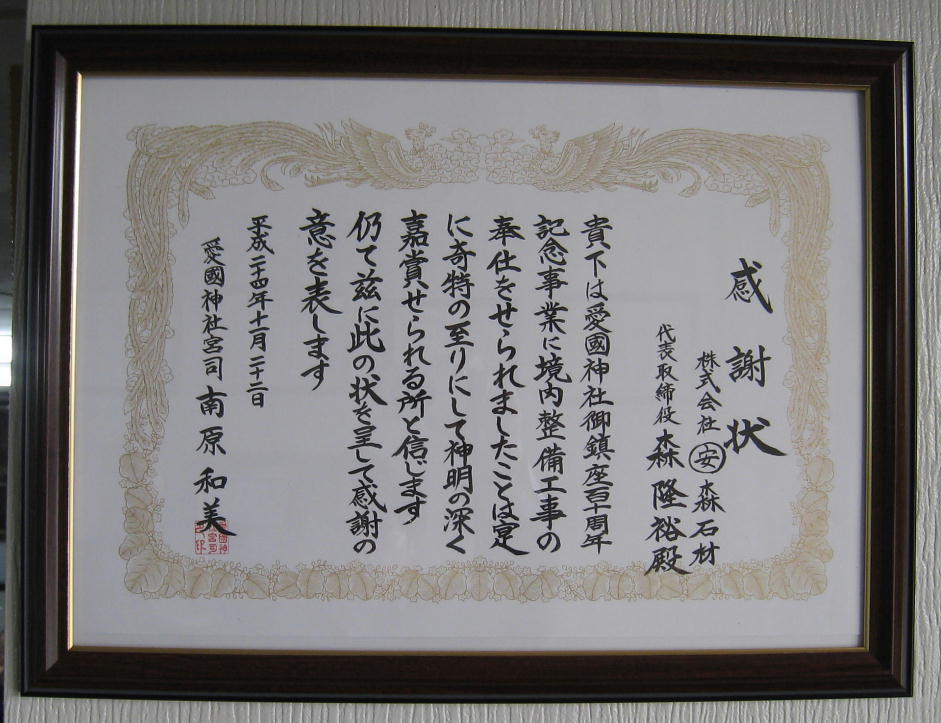 感謝状
株式会社 ㊛ 森石材
代表取締役 森隆裕殿
貴下は愛國神社御鎮座百十周年
記念事業に境内整備工事の
奉仕をせられましたことは寔
に奇特の至りにして神明の深く
嘉賞せられる所と信じます
仍て茲に此の状を呈して感謝の
意を表します
平成二十四年十一月二十二日
愛國神社宮司 南原和美